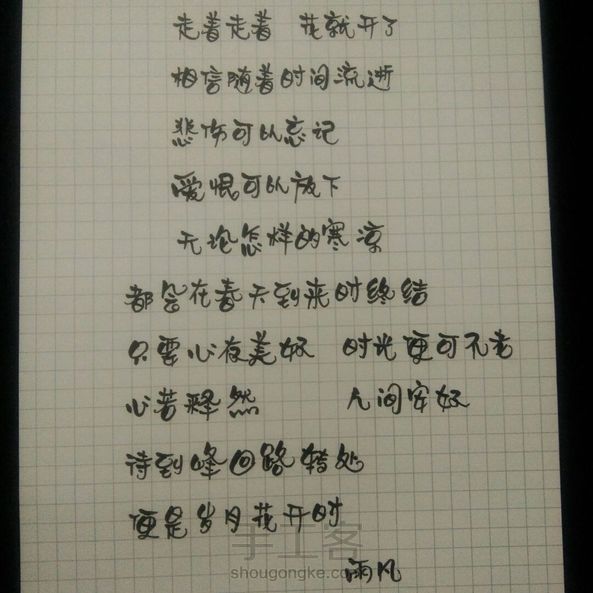 走着走着 花就开了
相信随着时间流逝
悲伤可以忘记
爱恨可以放下
无论怎样的寒凉
都会在春天到来时终结
只要心有美好 时光便可不老
心若释然 人间安好
待到峰回路转处
便是岁月花开时
雨凡
手工客
shougongke.com